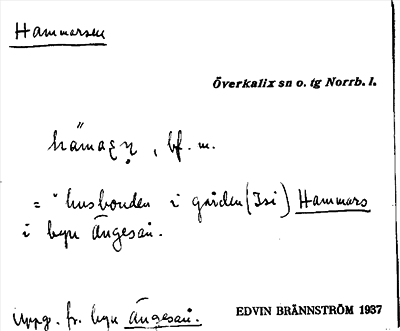 Hammarsen
Överkalix sn o. tg Norrb. l.
bf. m.
= husbonden i gården (Isi) Hammars
i byn Ängesån.
Uppg. fr. byn Ängesån.
EDVIN BRÄNNSTRÖM 1937